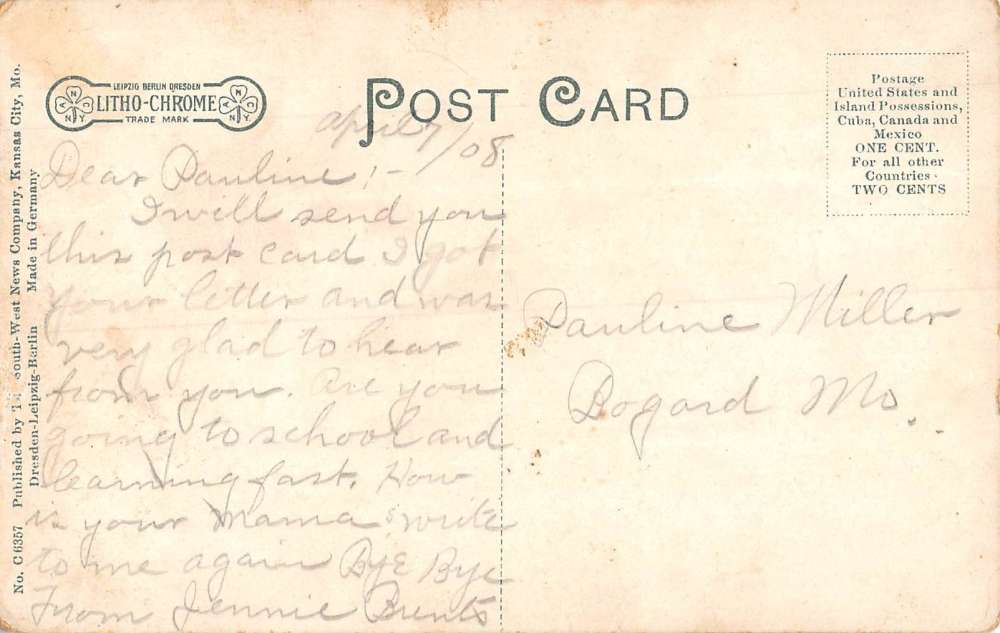 LEIPZIG BERLIN DRESDEN
LITHO-CHROME
TRADE MARK
A N C N Y
A N C N Y
POST CARD
Postage
United States and
Island Possessions,
Cuba, Canada and
Mexico
ONE CENT.
For all other
Countries
TWO CENTS
April 7/08
Dear Pauline :-
I will send you
this post card I got
your letter and was
very glad to hear
from you. Are you
going to school and
learning fast. How
is your Mama write
to me again Bye Bye
From Jennie Brents
Pauline Miller
Bogard Mo.
No. C 6357 Published by South-West News Company, Kansas City, Mo.
Dresden-Leipzig-Berlin Made in Germany